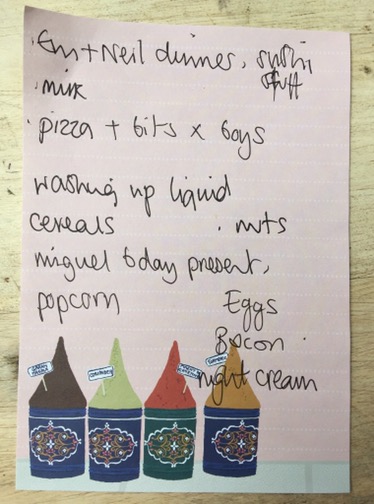 · Em + Neil dinner, sushi
stuff
· milk
· pizza + bits x boys
washing up liquid
cereals · nuts
miguel bday present,
popcorn Eggs
Bacon
night cream